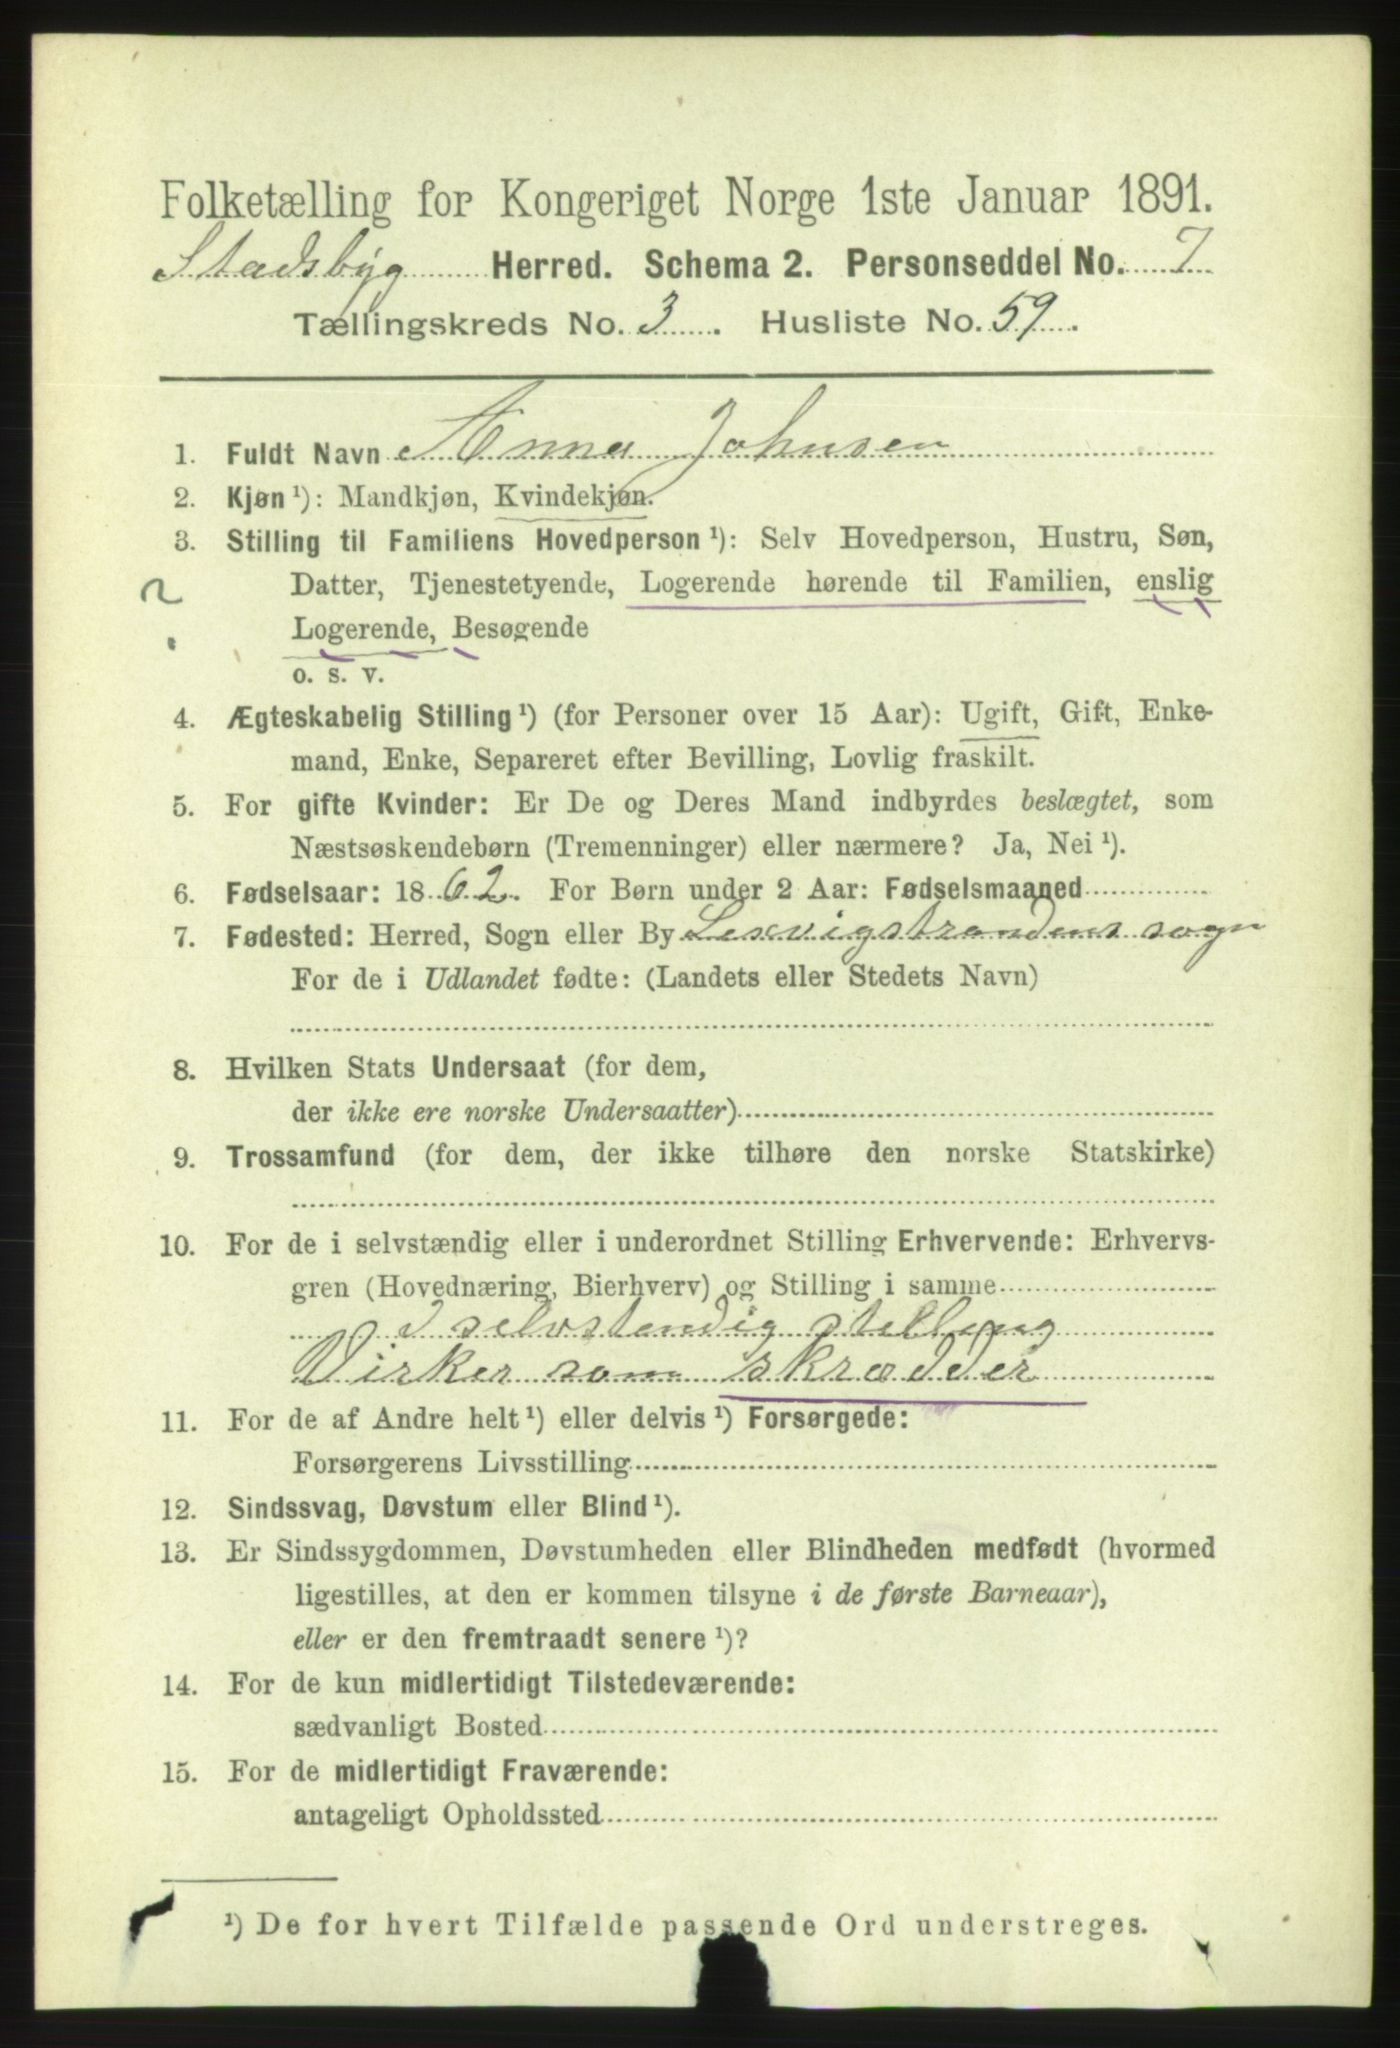 Folketælling for Kongeriget Norge 1ste Januar 1891.
Stadsbyg Herred. Schema 2. Personseddel No. 7
Tællingskreds No. 3. Husliste No. 59.
1. Fuldt Navn Anna Johnsen
2. Kjøn ¹): Mandkjøn, Kvindekjøn.
3. Stilling til Familiens Hovedperson ¹): Selv Hovedperson, Hustru, Søn,
2 Datter, Tjenestetyende, Logerende hørende til Familien, enslig
Logerende, Besøgende
o. s. v.
4. Ægteskabelig Stilling ¹) (for Personer over 15 Aar): Ugift, Gift, Enke-
mand, Enke, Separeret efter Bevilling, Lovlig fraskilt.
5. For gifte Kvinder: Er De og Deres Mand indbyrdes beslægtet, som
Næstsøskendebørn (Tremenninger) eller nærmere? Ja, Nei ¹).
6. Fødselsaar: 1862. For Børn under 2 Aar: Fødselsmaaned
7. Fødested: Herred, Sogn eller By Lexvigstrandens sogn
For de i Udlandet fødte: (Landets eller Stedets Navn)
8. Hvilken Stats Undersaat (for dem,
der ikke ere norske Undersaatter)
9. Trossamfund (for dem, der ikke tilhøre den norske Statskirke)
10. For de i selvstændig eller i underordnet Stilling Erhvervende: Erhvervs-
gren (Hovednæring, Bierhverv) og Stilling i samme
I selvstendig stelling
Virker som skrædder
11. For de af Andre helt ¹) eller delvis ¹) Forsørgede:
Forsørgerens Livsstilling
12. Sindssvag, Døvstum eller Blind ¹).
13. Er Sindssygdommen, Døvstumheden eller Blindheden medfødt (hvormed
ligestilles, at den er kommen tilsyne i de første Barneaar),
eller er den fremtraadt senere ¹)?
14. For de kun midlertidigt Tilstedeværende:
sædvanligt Bosted
15. For de midlertidigt Fraværende:
antageligt Opholdssted
¹) De for hvert Tilfælde passende Ord understreges.